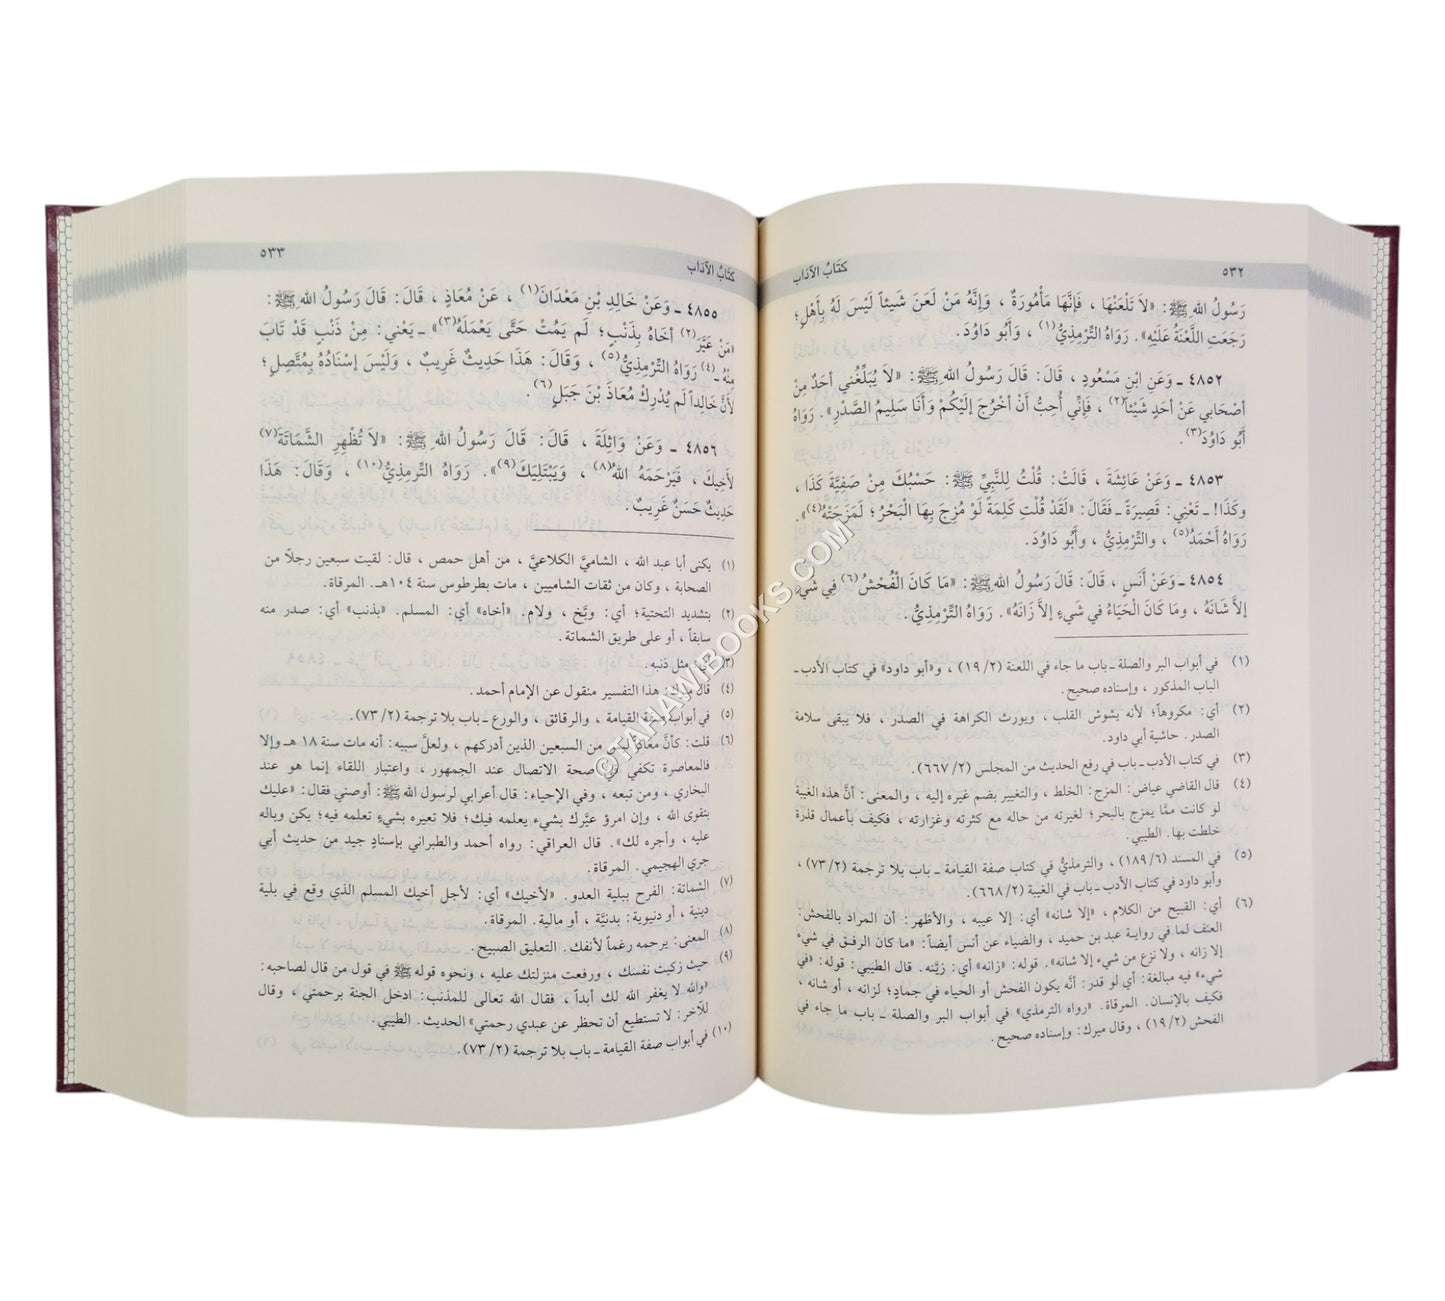 ٥٣٢
كتَابُ الآدَاب
رَسُولُ اللهِ ﷺ: «لاَ تَلْعَنْهَا ، فَإِنَّهَا مَأْمُورَةٌ ، وَإِنَّهُ مَنْ لَعَنَ شَيْئاً لَيْسَ لَهُ بِأَهْلٍ؛
رَجَعَتِ اللَّعْنَةُ عَلَيْهِ». رَوَاهُ التِّرْمِذِيُّ(١) ، وَأَبُو دَاوُدَ.
٤٨٥٢ ـ وَعَنِ ابْنِ مَسْعُودٍ ، قَالَ: قَالَ رَسُولُ اللهِ ﷺ: «لاَ يُبَلِّغُني أَحَدٌ مِنْ
أَصْحَابي عَنْ أَحَدٍ شَيْئاً(٢) ، فَإِنِّي أُحِبُّ أَنْ أَخْرُجَ إِلَيْكُمْ وَأَنَا سَلِيمُ الصَّدْرِ». رَوَاهُ
أَبُو دَاوُدَ(٣).
٤٨٥٣ ـ وَعَنْ عَائِشَةَ ، قَالَتْ: قُلْتُ لِلنَّبِيِّ ﷺ: حَسْبُكَ مِنْ صَفِيَّةَ كَذَا ،
وَكَذَا! ـ تَعْنِي: قَصِيرَةً ـ فَقَالَ: «لَقَدْ قُلْتِ كَلِمَةً لَوْ مُزِجَ بِهَا الْبَحْرُ؛ لَمَزَجَتْهُ(٤)».
رَوَاهُ أَحْمَدُ(٥) ، والتِّرْمِذِيُّ ، وأَبُو دَاوُدَ.
٤٨٥٤ ـ وَعَنْ أَنَسٍ ، قَالَ: قَالَ رَسُولُ اللهِ ﷺ: «مَا كَانَ الْفُحْشُ(٦) فِي شَيْءٍ
إلاَّ شَانَهُ ، ومَا كَانَ الْحَيَاءُ في شَيءٍ إلاَّ زَانَهُ». رَوَاهُ التِّرْمِذِيُّ.
(١) في أبواب البر والصلة ـ باب ما جاء في اللعنة (٢/ ١٩) ، و«أبو داود» في كتاب الأدب ـ
الباب المذكور ، وإسناده صحيح.
(٢) أي: مكروهاً؛ لأنه يشوش القلب ، ويورث الكراهة في الصدر ، فلا يبقى سلامة
الصدر. حاشية أبي داود.
(٣) في كتاب الأدب ـ باب في رفع الحديث من المجلس (٢/ ٦٦٧).
(٤) قال القاضي عياض: المزج: الخلط ، والتغيير بضم غيره إليه ، والمعنى: أنَّ هذه الغيبة
لو كانت ممَّا يمزج بالبحر؛ لغيرته من حاله مع كثرته وغزارته ، فكيف بأعمال قذرة
خلطت بها. الطيبي.
(٥) في المسند (٦/ ١٨٩) ، والترمذيُّ في كتاب صفة القيامة ـ باب بلا ترجمة (٢/ ٧٣) ،
وأبو داود في كتاب الأدب ـ باب في الغيبة (٢/ ٦٦٨).
(٦) أي: القبيح من الكلام ، «إلا شانه» أي: إلا عيبه ، والأظهر: أن المراد بالفحش:
العنف لما في رواية عبد بن حميد ، والضياء عن أنس أيضاً: «ما كان الرفق في شيء
إلا زانه ، ولا نزع من شيء إلا شانه». قوله: «زانه» أي: زيَّنه. قال الطيبي: قوله: «في
شيء» فيه مبالغة: أي لو قدر: أنَّه يكون الفحش أو الحياء في جماد؛ لزانه ، أو شانه ،
فكيف بالإنسان. المرقاة. «رواه الترمذي» في أبواب البر والصلة ـ باب ما جاء في
الفحش (٢/ ١٩) ، وقال ميرك: وإسناده صحيح.
كتَابُ الآدَاب
٥٣٣
٤٨٥٥ ـ وَعَنْ خَالِدِ بْنِ مَعْدَانَ(١) ، عَنْ مُعَاذٍ ، قَالَ: قَالَ رَسُولُ اللهِ ﷺ:
«مَنْ عَيَّرَ(٢) أَخَاهُ بِذَنْبٍ؛ لَم يَمُتْ حَتَّى يَعْمَلَهُ(٣)» ـ يَعْني: مِنْ ذَنْبٍ قَدْ تَابَ
مِنْهُ ـ(٤) رَوَاهُ التِّرْمِذِيُّ(٥) ، وَقَالَ: هَذَا حَدِيثٌ غَرِيبٌ ، وَلَيْسَ إِسْنَادُهُ بِمُتَّصِلٍ؛
لأَنَّ خَالِداً لَم يُدْرِكْ مُعَاذَ بْنَ جَبَلٍ(٦).
٤٨٥٦ ـ وَعَنْ وَاثِلَةَ ، قَالَ: قَالَ رَسُولُ اللهِ ﷺ: «لاَ تُظْهِرِ الشَّمَاتَةَ(٧)
لأَخِيكَ ، فَيَرْحَمَهُ اللهُ(٨) ، وَيَبْتَلِيَكَ(٩)». رَوَاهُ التِّرْمِذِيُّ(١٠) ، وَقَالَ: هَذَا
حَدِيثٌ حَسَنٌ غَرِيبٌ.
(١) يكنى أبا عبد الله ، الشاميَّ الكلاعيَّ ، من أهل حمص ، قال: لقيت سبعين رجلاً من
الصحابة ، وكان من ثقات الشاميين ، مات بطرطوس سنة ١٠٤هـ. المرقاة.
(٢) بتشديد التحتية؛ أي: وبَّخ ، ولام. «أخاه» أي: المسلم. «بذنب» أي: صدر منه
سابقاً ، أو على طريق الشماتة.
(٣) أي: مثل ذنبه.
(٤) قال ميرك: هذا التفسير منقول عن الإمام أحمد.
(٥) في أبواب صفة القيامة ، والرقائق ، والورع ـ باب بلا ترجمة (٢/ ٧٣).
(٦) قلت: كأنَّ معاذاً ليس من السبعين الذين أدركهم ، ولعلَّ سببه: أنه مات سنة ١٨ هـ وإلا
فالمعاصرة تكفي في صحة الاتصال عند الجمهور ، واعتبار اللقاء إنما هو عند
البخاري ، ومن تبعه ، وفي الإحياء: قال أعرابي لرسول الله ﷺ: أوصني فقال: «عليك
بتقوى الله ، وإن امرؤ عيَّرك بشيء يعلمه فيك؛ فلا تعيره بشيءٍ تعلمه فيه؛ يكن وباله
عليه ، وأجره لك». قال العراقي: رواه أحمد والطبراني بإسنادٍ جيد من حديث أبي
جري الهجيمي. المرقاة.
(٧) الشماتة: الفرح ببلية العدو. «لأخيك» أي: لأجل أخيك المسلم الذي وقع في بلية
دينية ، أو دنيوية: بدنيَّة ، أو مالية. المرقاة.
(٨) المعنى: يرحمه رغماً لأنفك. التعليق الصبيح.
(٩) حيث زكيت نفسك ، ورفعت منزلتك عليه ، ونحوه قوله ﷺ في قول من قال لصاحبه:
«والله لا يغفر الله لك أبداً ، فقال الله تعالى للمذنب: ادخل الجنة برحمتي ، وقال
للآخر: لا تستطيع أن تحظر عن عبدي رحمتي» الحديث. الطيبي.
(١٠) في أبواب صفة القيامة ـ باب بلا ترجمة (٢/ ٧٣).
©TAHAWIBOOKS.COM